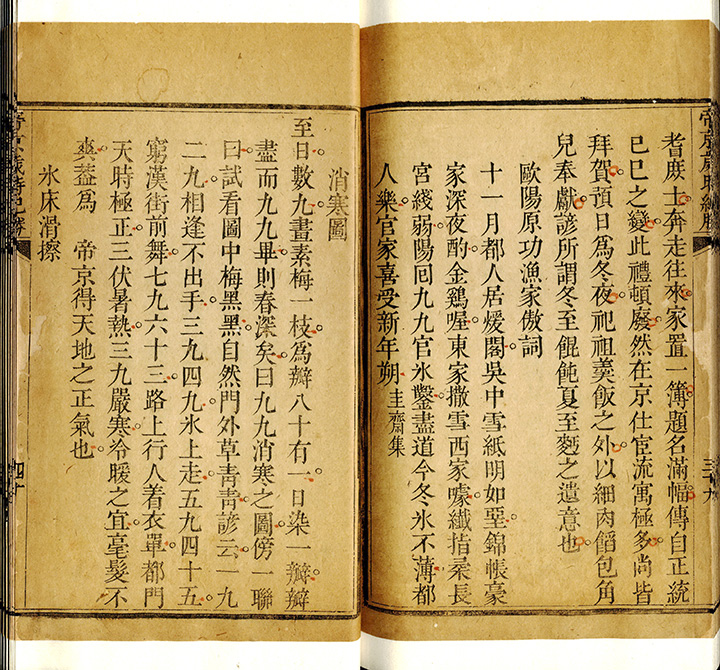 帝京歲時紀勝
耆庻士奔走往來家置一簿題名滿幅傳自正統
巳巳之變此禮頓廢然在京仕宦流寓極多尚皆
拜賀預日爲冬夜祀祖羹飯之外以細肉餡包角
兒奉獻諺所謂冬至餛飩夏至麪之遺意也
歐陽原功漁家傲詞
十一月都人居煖閣吳中雪紙明如堊錦帳豪
家深夜酌金鷄喔東家撒雪西家噱纖指柔長
宮綫弱陽囘九九官氷鑿盡道今冬氷不薄都
人樂官家喜受新年朔 圭齋集
消寒圖
至日數九畫素梅一枝爲瓣八十有一日染一瓣瓣
盡而九九畢則春深矣曰九九消寒之圖傍一聯
曰試看圖中梅黑黑自然門外草靑靑諺云一九
二九相逢不出手三九四九氷上走五九四十五
窮漢街前舞七九六十三路上行人着衣單都門
天時極正三伏暑熱三九嚴寒冷暖之宜毫髮不
爽葢爲 帝京得天地之正氣也
氷床滑擦